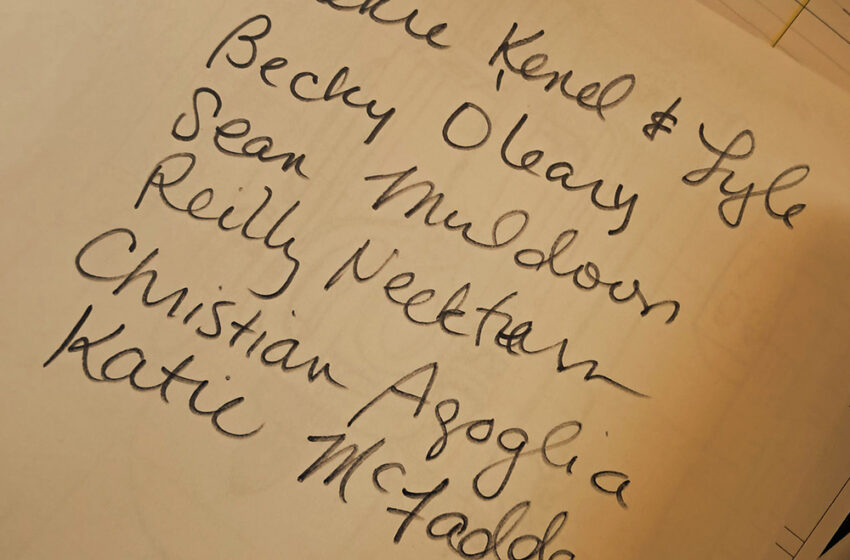 Kenel & Lyle
Becky Oleary
Sean Muldoon
Reilly
Christian Agoglia
Katie McFadde